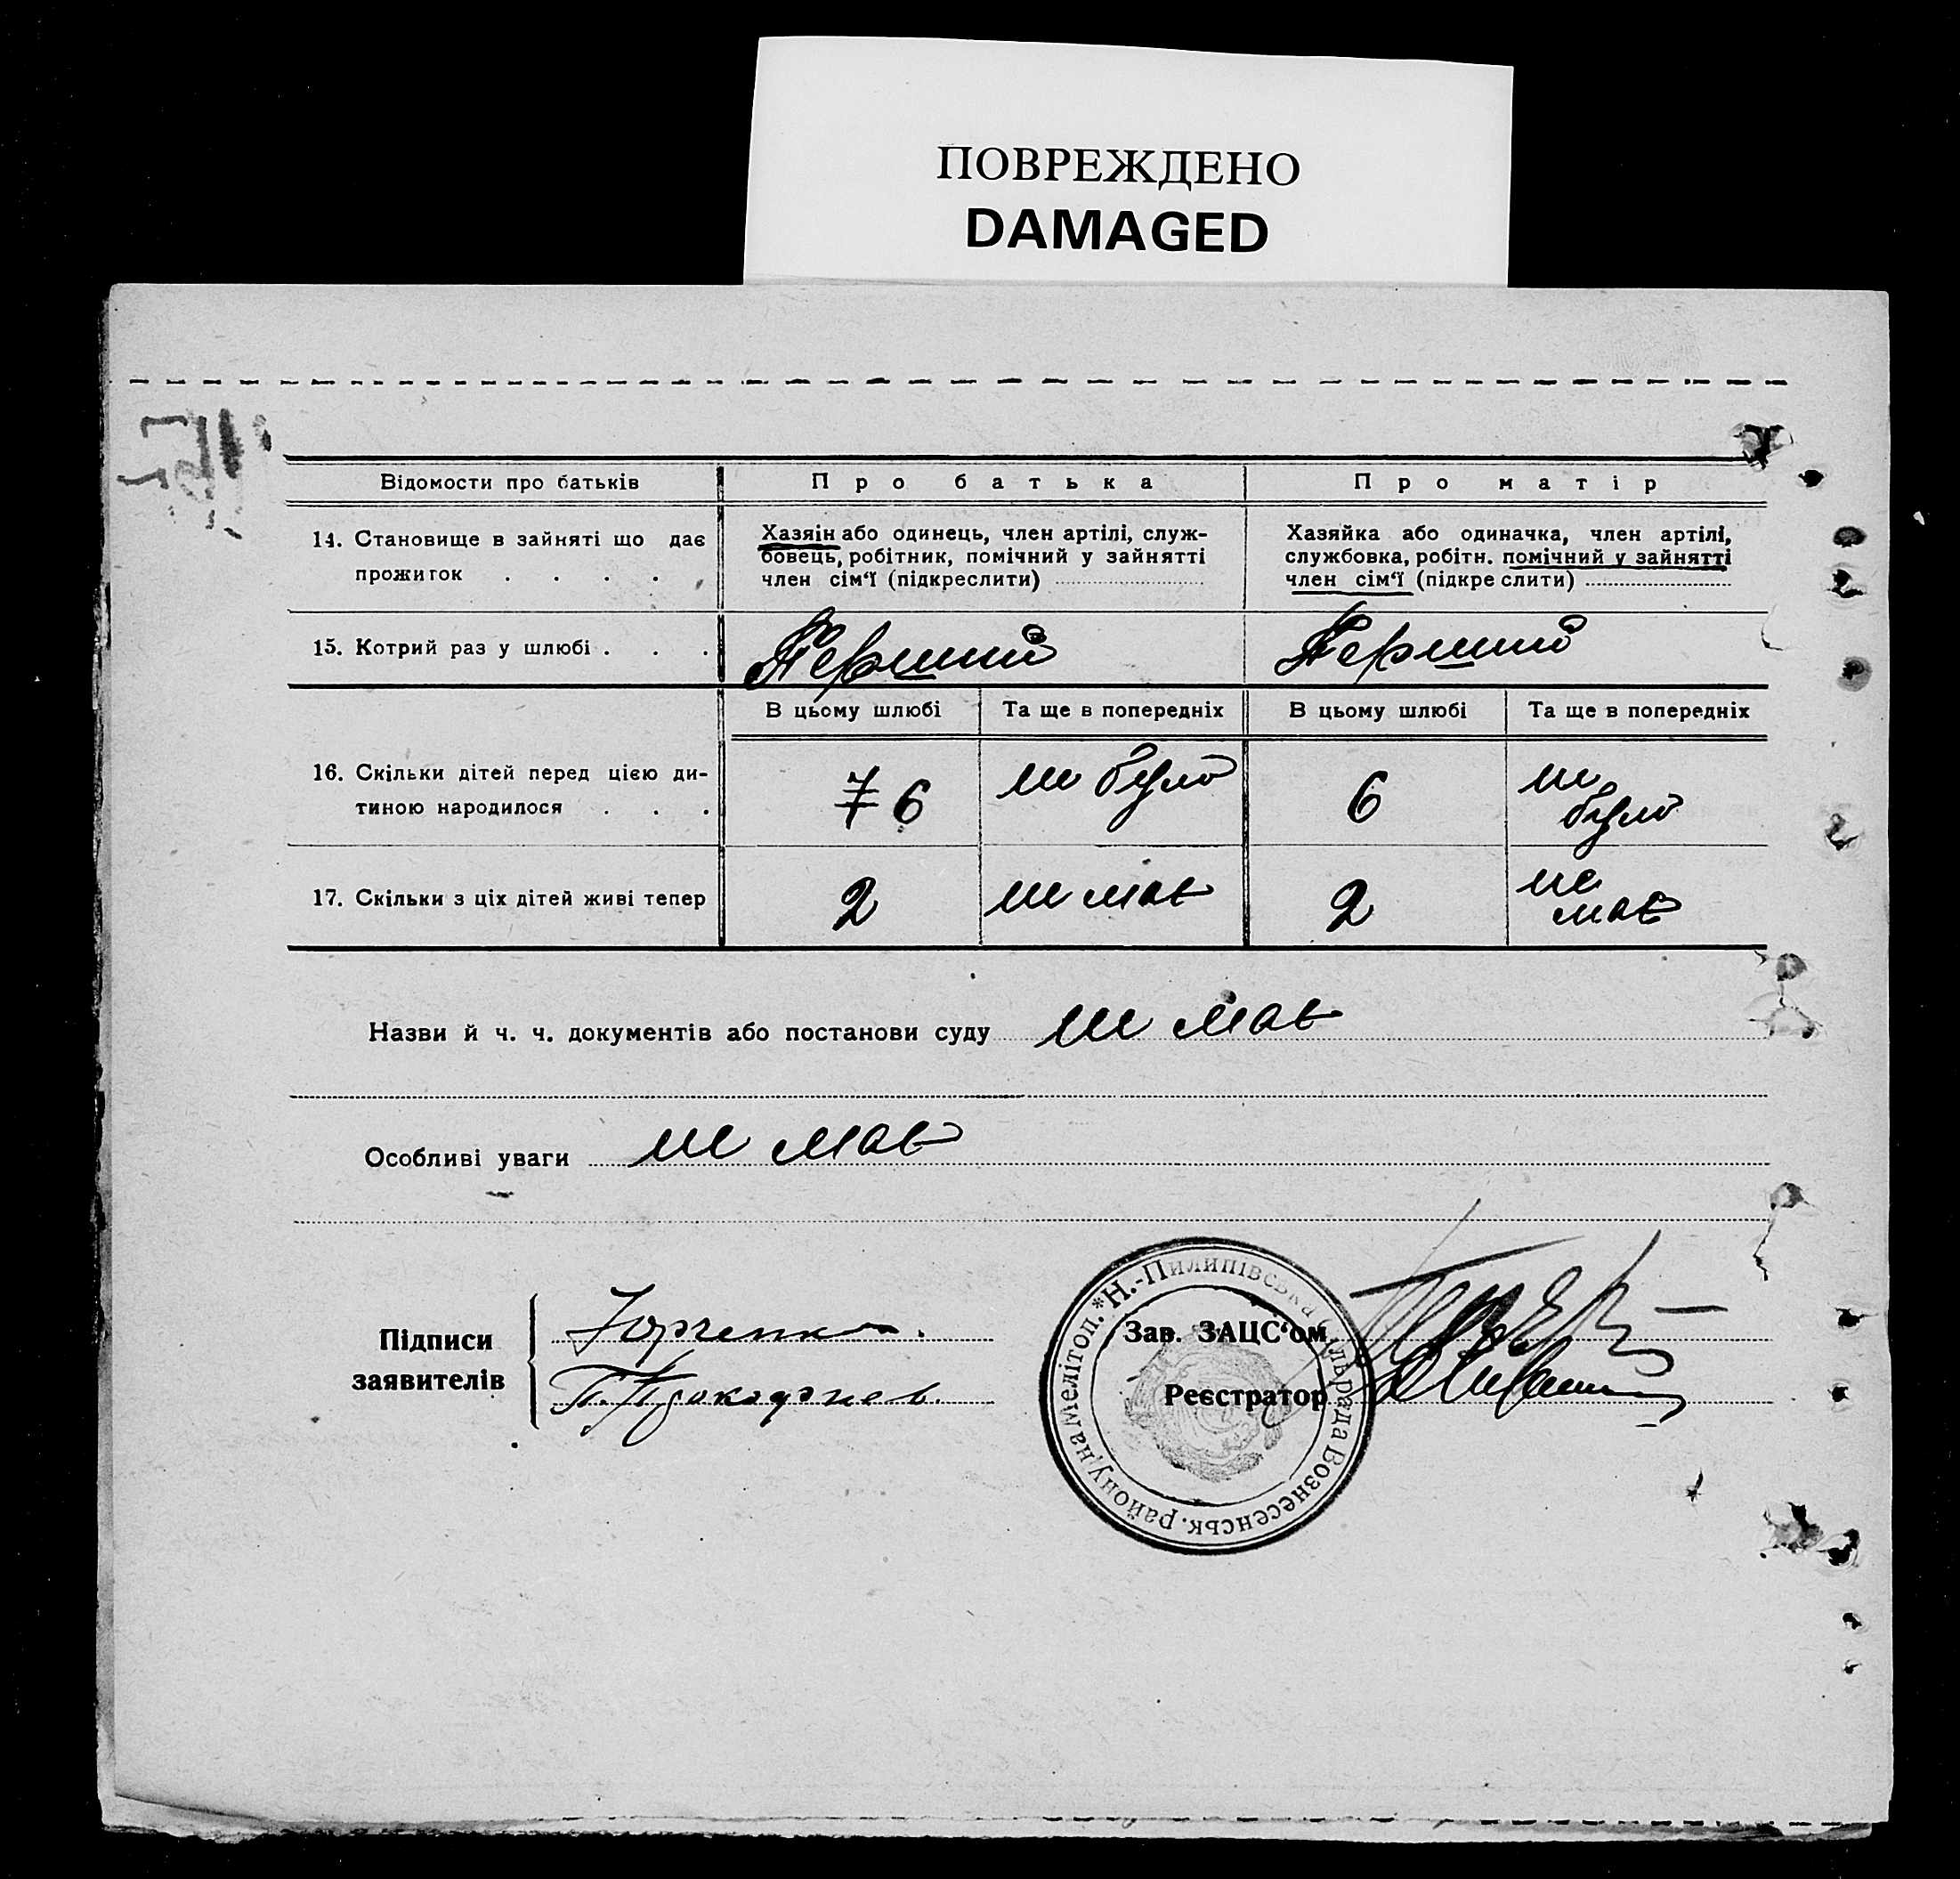 ПОВРЕЖДЕНО
DAMAGED
Відомости про батьків
Про батька
Про матір
14. Становище в зайняті що дає
прожиток . . . .
Хазяін або одинець, член артілі, служ-
бовець, робітник, помічний у зайнятті
член сім'ї (підкреслити)
Хазяйка або одиначка, член артілі,
службовка, робітн. помічний у зайнятті
член сім'ї (підкреслити)
15. Котрий раз у шлюбі . . .
Перший
Перший
В цьому шлюбі
Та ще в попередніх
В цьому шлюбі
Та ще в попередніх
16. Скільки дітей перед цією ди-
тиною народилося . . .
7 6
не було
6
не
було
17. Скільки з ціх дітей живі тепер
2
не має
2
не
має
Назви й ч. ч. документів або постанови суду не має
Особливі уваги не має
Підписи
заявителів
Зав. ЗАЦС'ом
Реєстратор
*Н.-Пилипівська сільрада Вознесенськ. району, на Мелітоп.